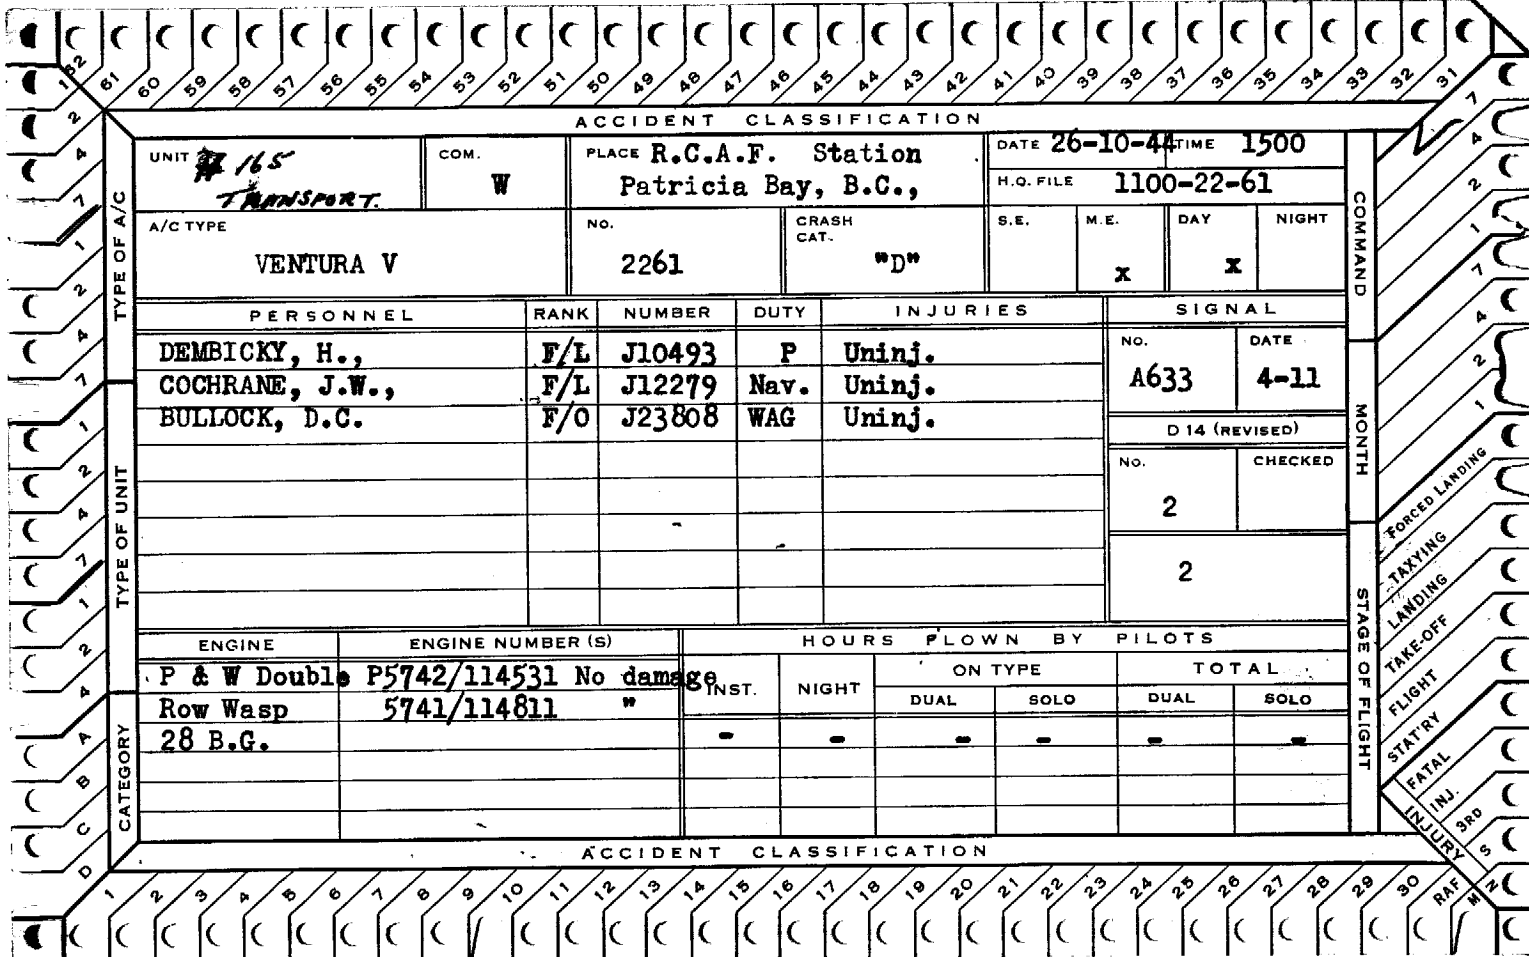 62 61 60 59 58 57 56 55 54 53 52 51 50 49 48 47 46 45 44 43 42 41 40 39 38 37 36 35 34 33 32 31
ACCIDENT CLASSIFICATION
UNIT # 165 TRANSPORT.
COM. W
PLACE R.C.A.F. Station
Patricia Bay, B.C.,
DATE 26-10-44 TIME 1500
H.Q. FILE 1100-22-61
A/C TYPE VENTURA V
NO. 2261
CRASH CAT. "D"
S.E. M.E. x DAY x NIGHT
PERSONNEL RANK NUMBER DUTY INJURIES SIGNAL
DEMBICKY, H., F/L J10493 P Uninj.
COCHRANE, J.W., F/L J12279 Nav. Uninj.
BULLOCK, D.C. F/O J23808 WAG Uninj.
NO. A633 DATE 4-11
D 14 (REVISED)
NO. 2 CHECKED
2
ENGINE ENGINE NUMBER (S) HOURS FLOWN BY PILOTS
P & W Double P5742/114531 No damage
Row Wasp 5741/114811 "
28 B.G.
INST. NIGHT ON TYPE TOTAL
DUAL SOLO DUAL SOLO
- - - - - -
ACCIDENT CLASSIFICATION
1 2 3 4 5 6 7 8 9 10 11 12 13 14 15 16 17 18 19 20 21 22 23 24 25 26 27 28 29 30 RAF M N
TYPE OF A/C
TYPE OF UNIT
CATEGORY
1 2 4 7 1 2 4 7 1 2 4 7 1 2 4 A B C D
COMMAND
MONTH
STAGE OF FLIGHT
7 4 2 1 7 4 2 1
FORCED LANDING
TAXYING
LANDING
TAKE-OFF
FLIGHT
STAT'RY
FATAL
INJ.
3RD
S
INJURY